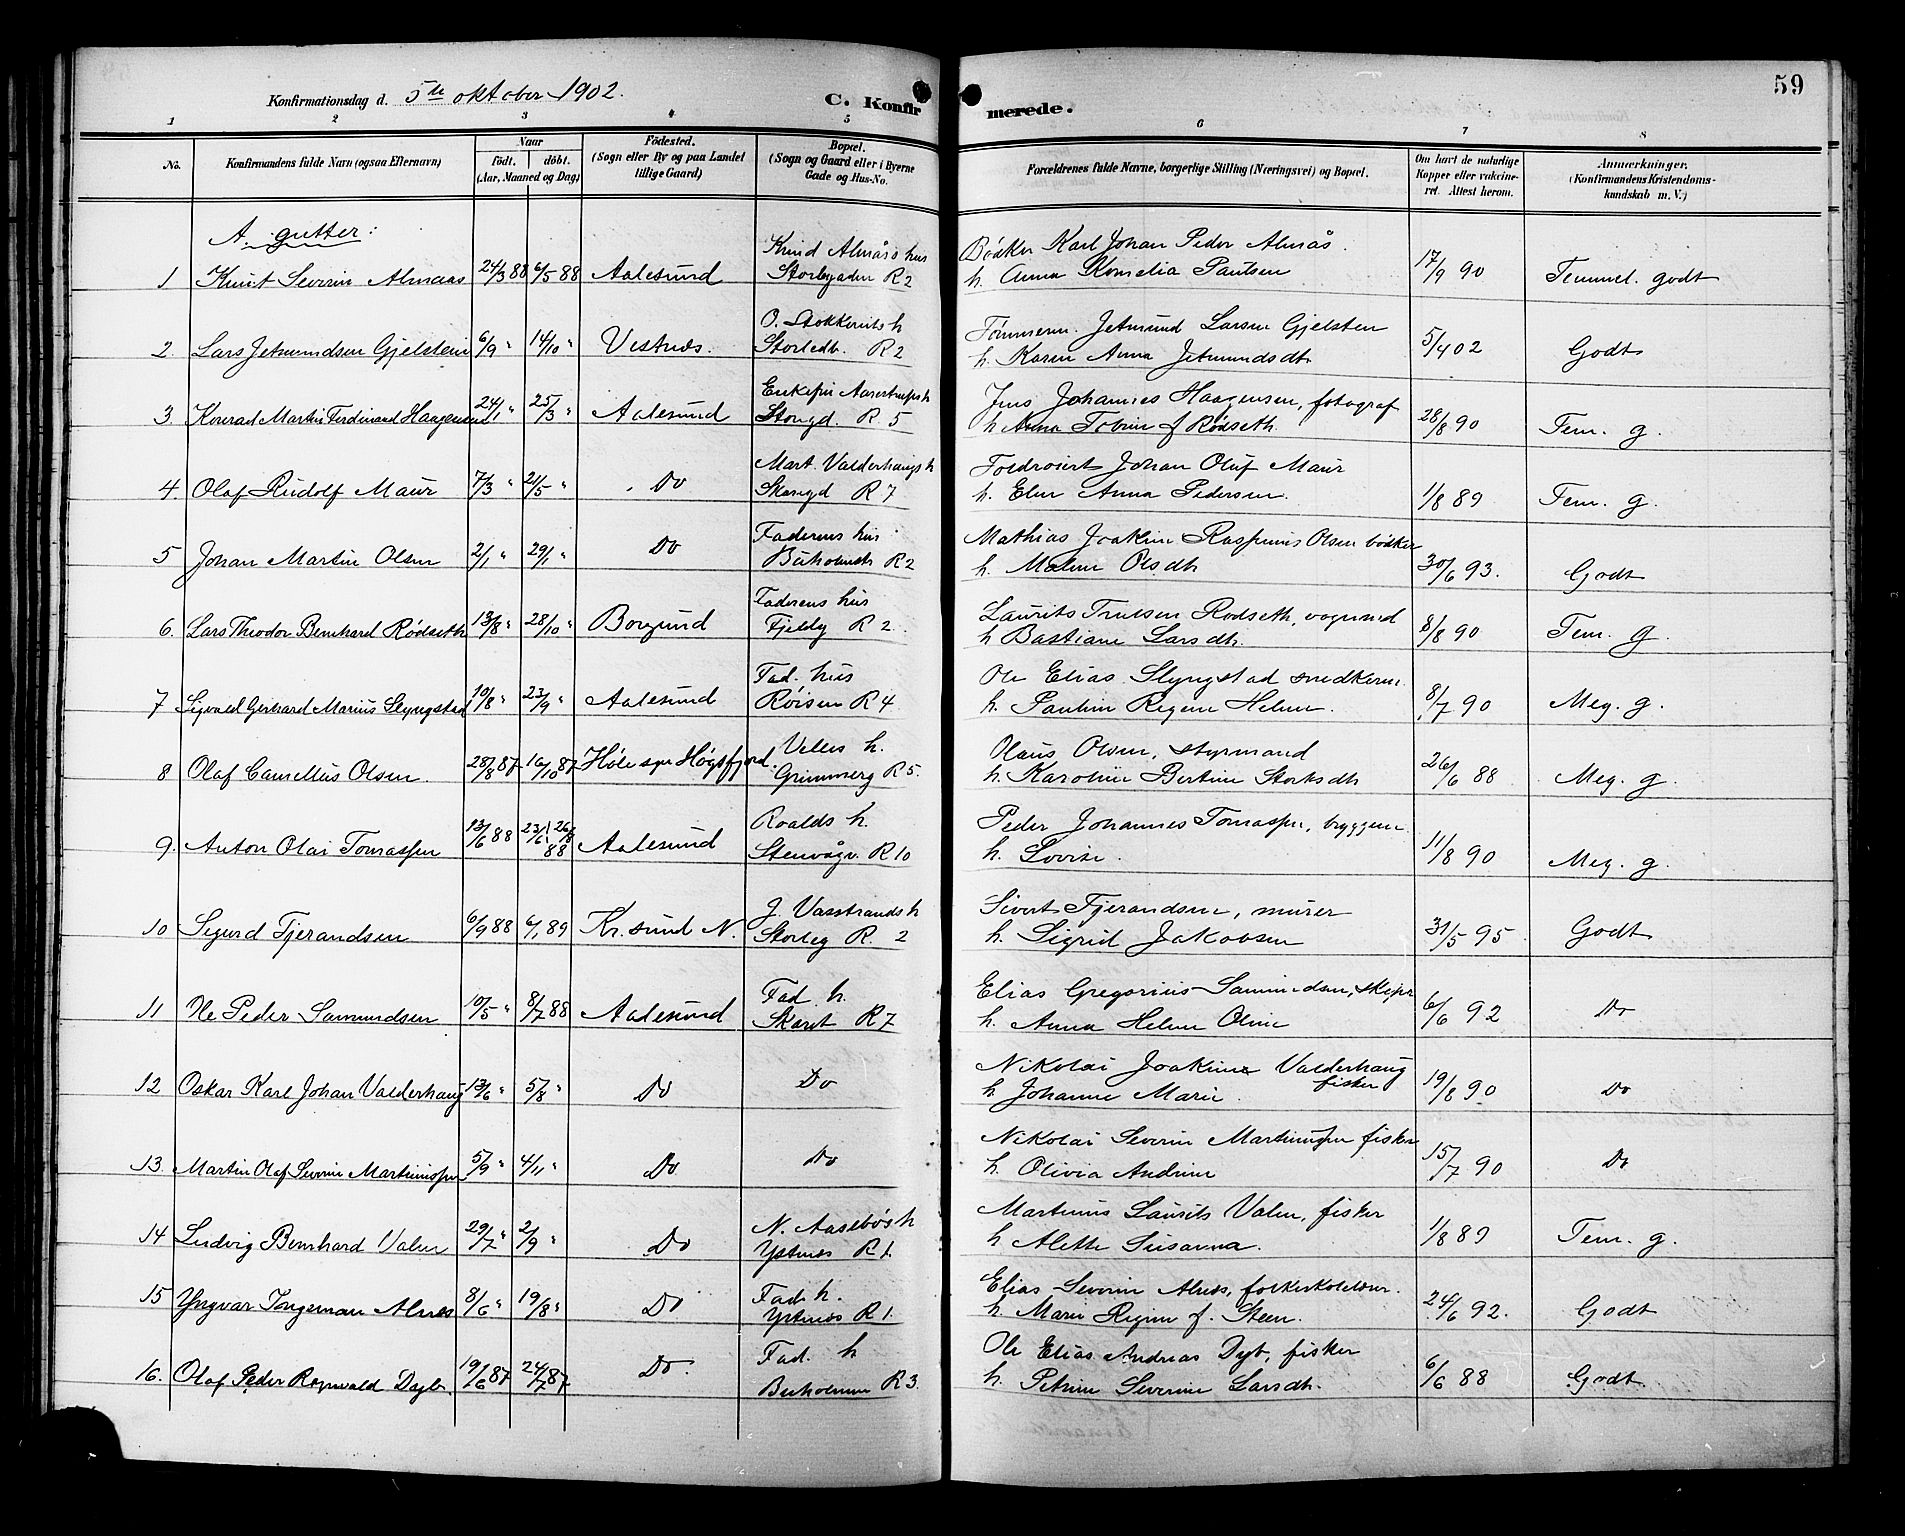 59
Konfirmationsdag d. 5te oktober 1902.
C. Konfir merede.
1 2 3 4 5 6 7 8
No.
Konfirmandens fulde Navn (ogsaa Efternavn)
Naar
födt. döbt.
(Aar, Maaned og Dag)
Födested.
(Sogn eller By og paa Landet
tillige Gaard)
Bopæl.
(Sogn og Gaard eller i Byerne
Gade og Hus-No.
Forældrenes fulde Navne, borgerlige Stilling (Næringsvei) og Bopæl.
Om havt de naturlige
Kopper eller vakcine-
ret. Attest herom.
Anmærkninger.
(Konfirmandens Kristendoms-
kundskab m. V.)
A. gutter:
Knud Almås hus Bødker Karl Johan Peder Almås.
1 Knut Severin Almaas 24/3 88 6/5 88 Aalesund Storhgaden R2 h. Anna Kornelia Paulsen 17/9 90 Temmel. godt
O. Stokkeriets h Tømmerm. Jetmund Larsen Gjelsten
2. Lars Jetmundsen Gjelstein 6/9 " 14/10 " Vestnes. Storledb. R2 h. Karen Anna Jetmundsdt. 5/4 02 Godt
Enkefru Aarestrups h Jens Johannes Haagensen, fotograf
3. Konrad Martin Ferdinand Haagensen 24/1 " 25/3 " Aalesund Storgd. R 5 h Anna Tobine f Rødseth. 28/8 90 Tem. g.
Mart. Valderhaugs h Johan Oluf Maur
4. Olaf Rudolf Maur 7/3 " 21/5 " Do Skargd R 7 h. Elen Anna Pedersen. 1/8 89 Tem. g.
Faderens hus Mathias Joakim Rasmus Olsen bødker
5 Johan Martin Olsen 2/1 " 29/1 " Do R2 h. Malene Olsdt 30/6 93. Godt
Faderens hus Laurits Trulsen Rødseth, vognmd
6. Lars Theodor Bernhard Rødseth 13/8 " 28/10 " Borgund Fjeldg R 2. h Bastiane Larsdt. 8/8 90 Tem. g.
Fad. hus Ole Elias Slyngstad snedkerm.
7 Sigvald Gerhard Marius Slyngstad 10/8 " 23/9 " Aalesund Røisen R 4 h. Pauline Regine Helene. 8/7 90 Meg. g.
h. Olaus Olsen, styrmand
8 Olaf Camellus Olsen. 28/8 87 16/10 87 Høle spr Høgsfjord. Grimmerg R 5. h. Karoline Bertine Storksdt 26/6 88 Meg. g.
Roalds h. Peder Johannes Tomassen, bryggerm.
9. Anton Olai Tomassen 13/6 88 23/6 26/8 88 Aalesund Stenvågv. R 10 h. Lovise. 11/8 90 Meg. g.
J. Vasstrands h Sivert Fjerandsen, murer
10 Sigurd Fjerandsen 6/9 88 6/1 89 Kr.sund N. Storleg R. 2 h. Sigrid Jakobsen 31/5 95. Godt
Fad. h. Elias Gregorius Samundsen, skipr
11 Ole Peder Samundsen 10/5 " 8/7 88 Aalesund Skaret R7 h. Anna Helene Oline 6/6 92 Do
Nikolai Joakim Valderhaug
12 Oskar Karl Johan Valderhaug 13/6 " 5/8 " Do Do h. Johanne Marie. fisker 19/8 90 Do
Nikolai Severin Martinussen fisker
13. Martin Olaf Severin Martinussen 5/9 " 4/11 " Do Do h. Olivia Andrine 15/7 90 Do
N. Aasebøs h Martinus Laurits Valen, fisker
14 Ludvig Bernhard Valen 29/7 " 2/9 " Do Ystnes R 1. h Alette Susanna. 1/8 89 Tem. g.
Fad. h. Elias Severin Alnes, folkeskolelær.
15 Yngvar Ingeman Alnes 8/6 " 19/8 " Do Ystnes R 1. h. Marie Regine f. Steen. 24/6 92. Godt
Fad. h Ole Elias Andreas Dyb, fisker
16. Olaf Peder Rognvald Dyb. 19/6 87 24/7 87 Do. Buholmen R3. h. Petrine Severine Larsdt. 6/6 88 Godt